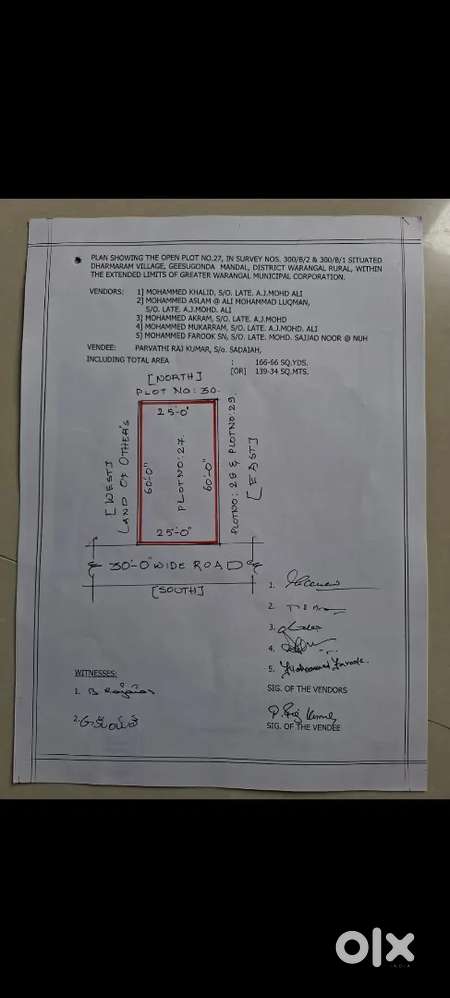 PLAN SHOWING THE OPEN PLOT NO.27, IN SURVEY NOS. 300/B/2 & 300/B/1 SITUATED
DHARMARAM VILLAGE, GEESUGONDA MANDAL, DISTRICT WARANGAL RURAL, WITHIN
THE EXTENDED LIMITS OF GREATER WARANGAL MUNICIPAL CORPORATION.
VENDORS: 1] MOHAMMED KHALID, S/O. LATE. A.J.MOHD ALI
2] MOHAMMED ASLAM @ ALI MOHAMMAD LUQMAN,
S/O. LATE. A.J.MOHD. ALI
3] MOHAMMED AKRAM, S/O. LATE. A.J.MOHD
4] MOHAMMED MUKARRAM, S/O. LATE. A.J.MOHD. ALI
5] MOHAMMED FAROOK SN, S/O. LATE. MOHD. SAJJAD NOOR @ NUH
VENDEE: PARVATHI RAJ KUMAR, S/o. SADAIAH,
INCLUDING TOTAL AREA : 166-66 SQ.YDS.
[OR] 139-34 SQ.MTS.
[NORTH]
PLOT NO: 30.
25'-0"
[WEST]
LAND OF OTHER'S
60'-0"
PLOT NO: 27.
60'-0"
PLOT NO: 28 & PLOT NO: 29.
[EAST]
25'-0"
30'-0" WIDE ROAD
[SOUTH]
1.
2.
3.
4.
5. Mohammed Farook.
SIG. OF THE VENDORS
WITNESSES:
1. B
2.
P. Raj Kumar
SIG. OF THE VENDEE
olx
INDIA